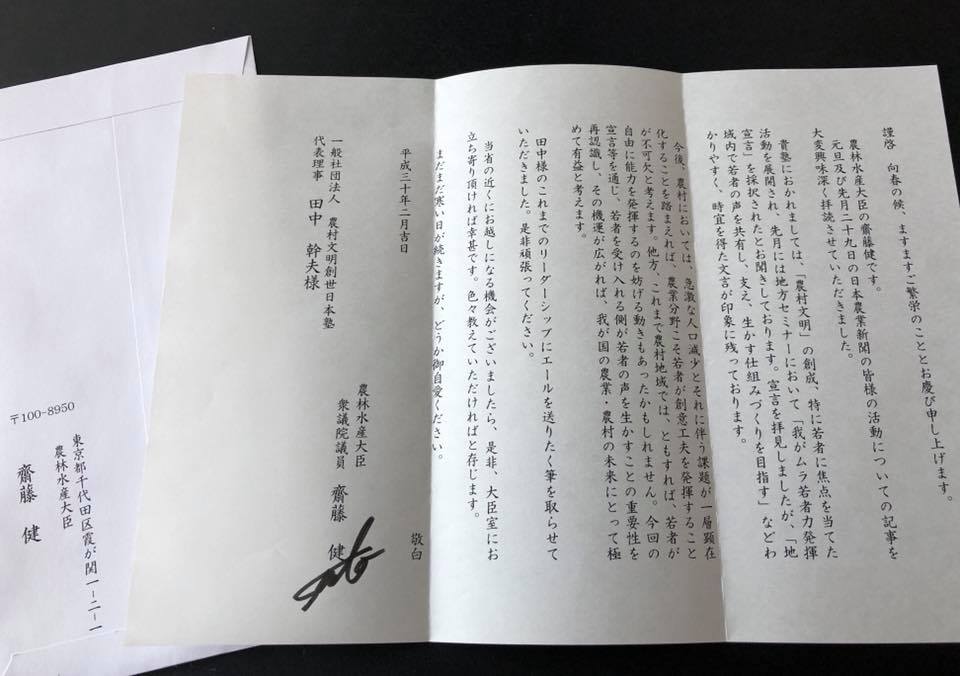 謹啓　向春の候、ますますご繁栄のこととお慶び申し上げます。
農林水産大臣の齋藤健です。
元旦及び先月二十九日の日本農業新聞の皆様の活動についての記事を
大変興味深く拝読させていただきました。
貴塾におかれましては、「農村文明」の創成、特に若者に焦点を当てた
活動を展開され、先月には地方セミナーにおいて「我がムラ若者力発揮
宣言」を採択されたとお聞きしております。宣言を拝見しましたが、「地
域内で若者の声を共有し、支え、生かす仕組みづくりを目指す」などわ
かりやすく、時宜を得た文言が印象に残っております。
今後、農村においては、急激な人口減少とそれに伴う課題が一層顕在
化することを踏まえれば、農業分野こそ若者が創意工夫を発揮すること
が不可欠と考えます。他方、これまで農村地域では、ともすれば、若者が
自由に能力を発揮するのを妨げる動きもあったかもしれません。今回の
宣言等を通じ、若者を受け入れる側が若者の声を生かすことの重要性を
再認識し、その機運が広がれば、我が国の農業・農村の未来にとって極
めて有益と考えます。
田中様のこれまでのリーダーシップにエールを送りたく筆を取らせて
いただきました。是非頑張ってください。
当省の近くにお越しになる機会がございましたら、是非、大臣室にお
立ち寄り頂ければ幸甚です。色々教えていただければと存じます。
まだまだ寒い日が続きますが、どうか御自愛ください。
敬白
平成三十年二月吉日
農林水産大臣
衆議院議員　齋藤　健
一般社団法人　農村文明創世日本塾
代表理事　田中　幹夫様
〒100-8950
東京都千代田区霞が関一－二－一
農林水産大臣
齋藤　健